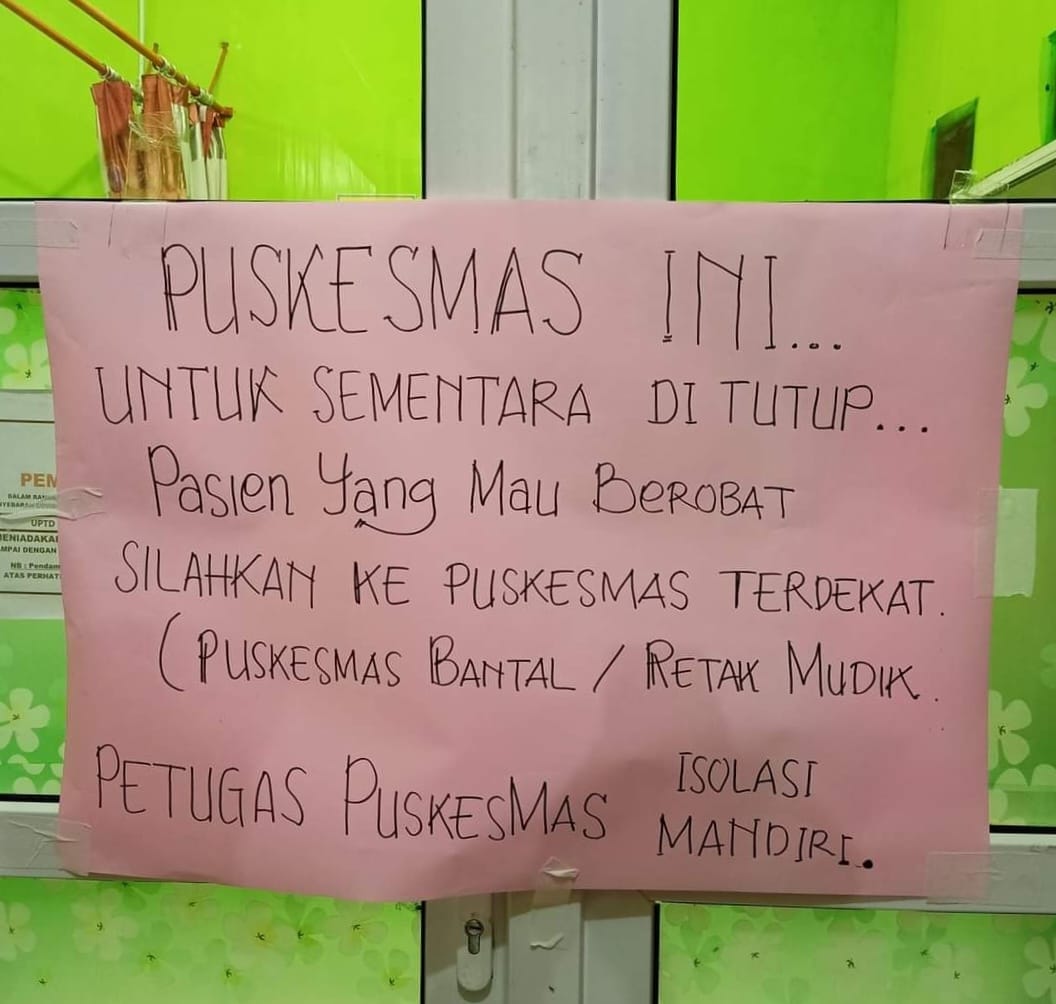 PUSKESMAS INI...
UNTUK SEMENTARA DI TUTUP...
Pasien Yang Mau BEROBAT
SILAHKAN KE PUSKESMAS TERDEKAT.
(PUSKESMAS BANTAL / RETAK MUDIK.
PETUGAS PUSKESMAS ISOLASI
MANDIRI.
PEM
DALAM
UPTD
MPAI DENGAN
NB : Pendam
ATAS PERHAT